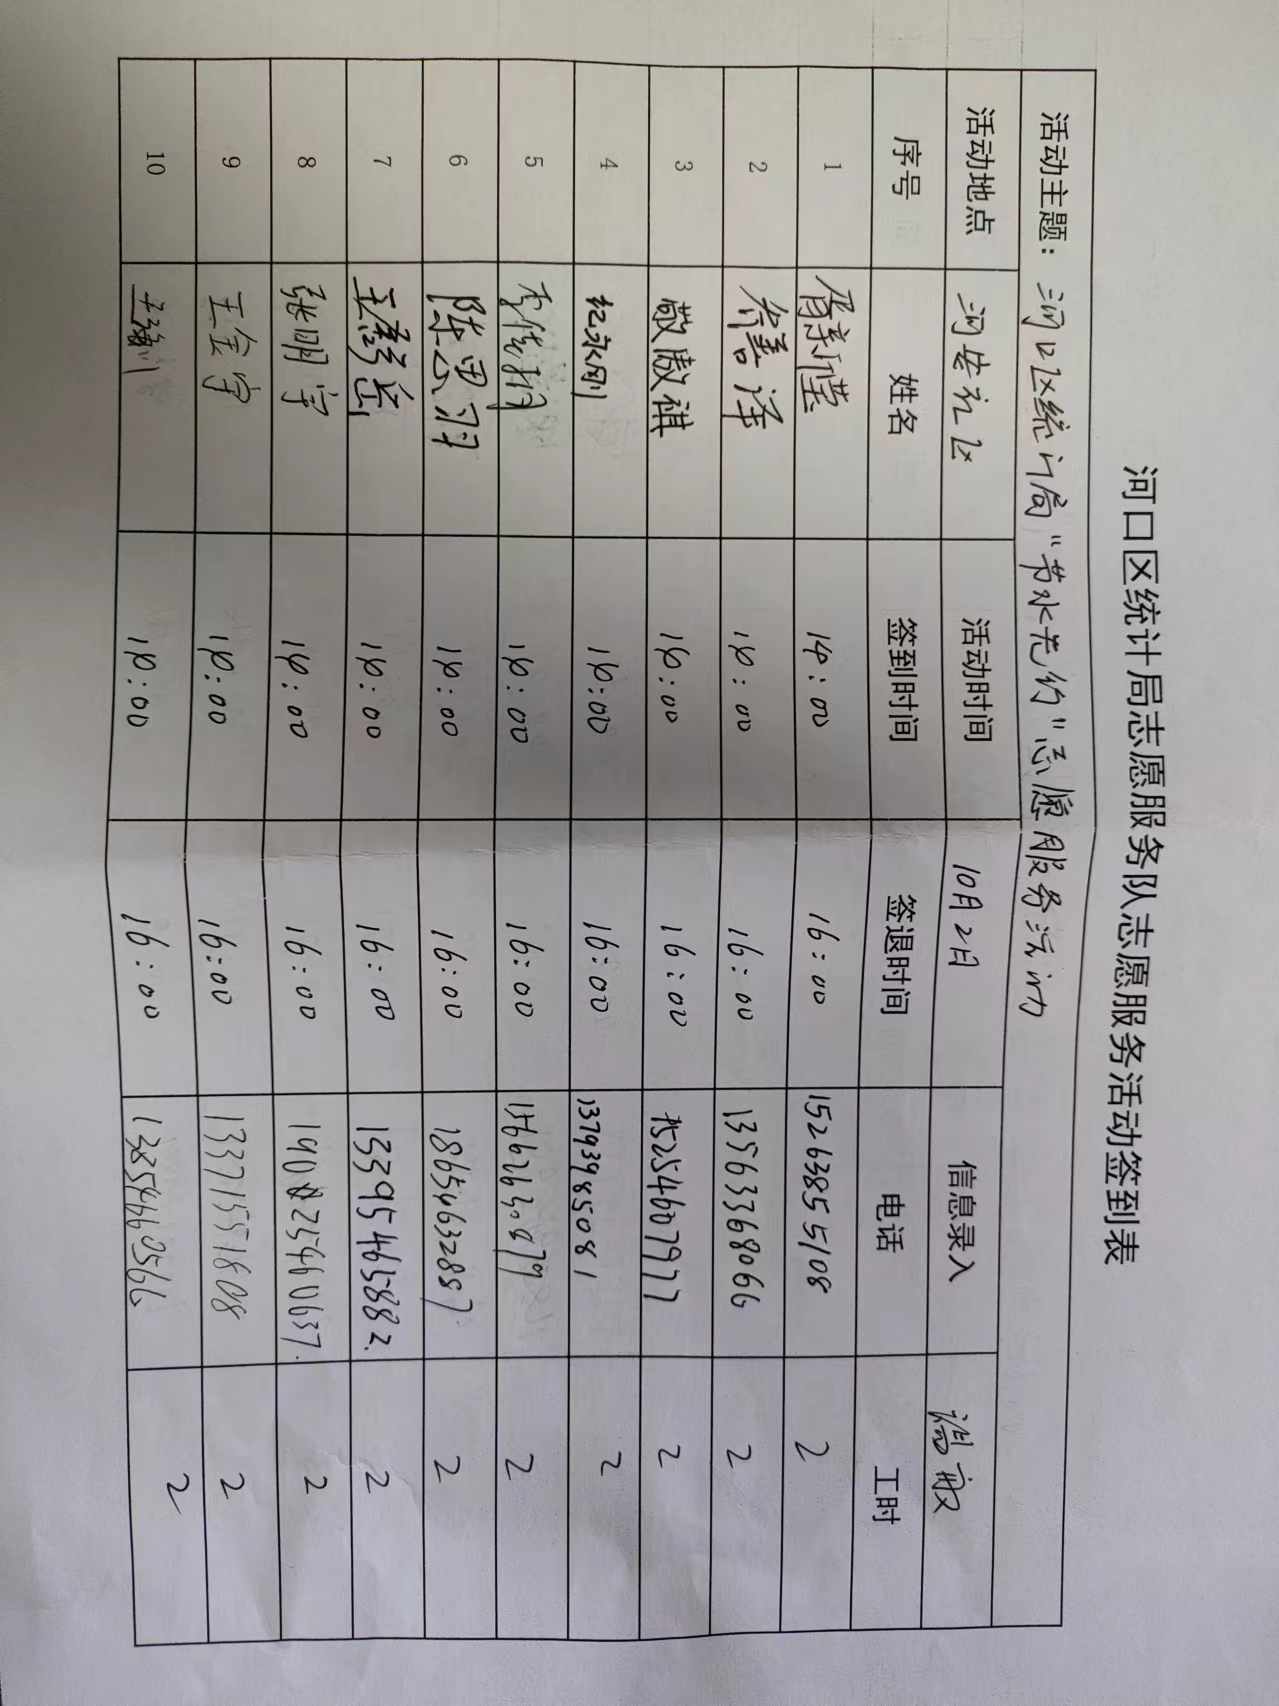 河口区统计局志愿服务队志愿服务活动签到表
活动主题：河口区统计局"节水先行"志愿服务活动
活动地点 河安社区 活动时间 10月2日 信息录入
序号 姓名 签到时间 签退时间 电话 工时
1 14:00 16:00 15263855108 2
2 14:00 16:00 13563368066 2
3 敬傲祺 14:00 16:00 15254607977 2
4 纪永刚 14:00 16:00 13793985081 2
5 14:00 16:00 2
6 陈思羽 14:00 16:00 18654632887 2
7 14:00 16:00 13395465882. 2
8 张明宇 14:00 16:00 2
9 王金宇 14:00 16:00 13371551808 2
10 14:00 16:00 2